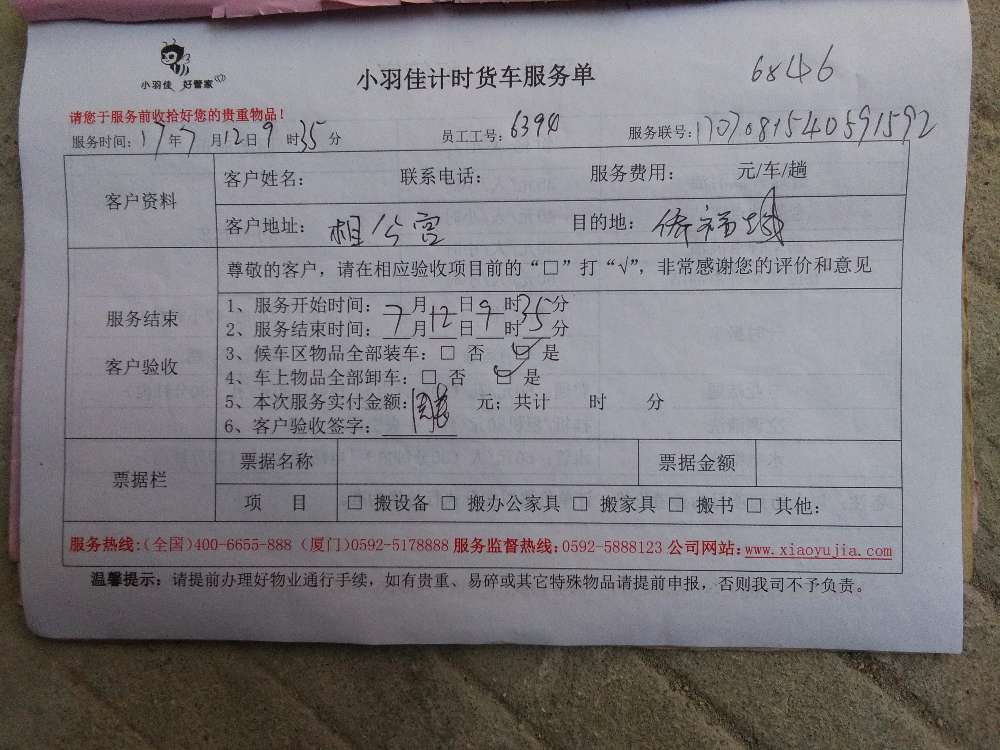 小羽佳 好管家
小羽佳计时货车服务单
6846
请您于服务前收拾好您的贵重物品！
服务时间：17年7月12日9时35分 员工工号：6394 服务联号：1707081540591592
客户资料
客户姓名： 联系电话： 服务费用： 元/车/趟
客户地址：相公宫 目的地：侨福城
服务结束
客户验收
尊敬的客户，请在相应验收项目前的“□”打“√”，非常感谢您的评价和意见
1、服务开始时间： 月 日 时 分
2、服务结束时间：7月12日9时35分
3、候车区物品全部装车：□ 否 ☑ 是
4、车上物品全部卸车：□ 否 ☑ 是
5、本次服务实付金额： 元；共计 时 分
6、客户验收签字：
票据栏
票据名称 票据金额
项 目 □ 搬设备 □ 搬办公家具 □ 搬家具 □ 搬书 □ 其他：
服务热线:（全国）400-6655-888（厦门）0592-5178888 服务监督热线：0592-5888123 公司网站：www.xiaoyujia.com
温馨提示：请提前办理好物业通行手续，如有贵重、易碎或其它特殊物品请提前申报，否则我司不予负责。